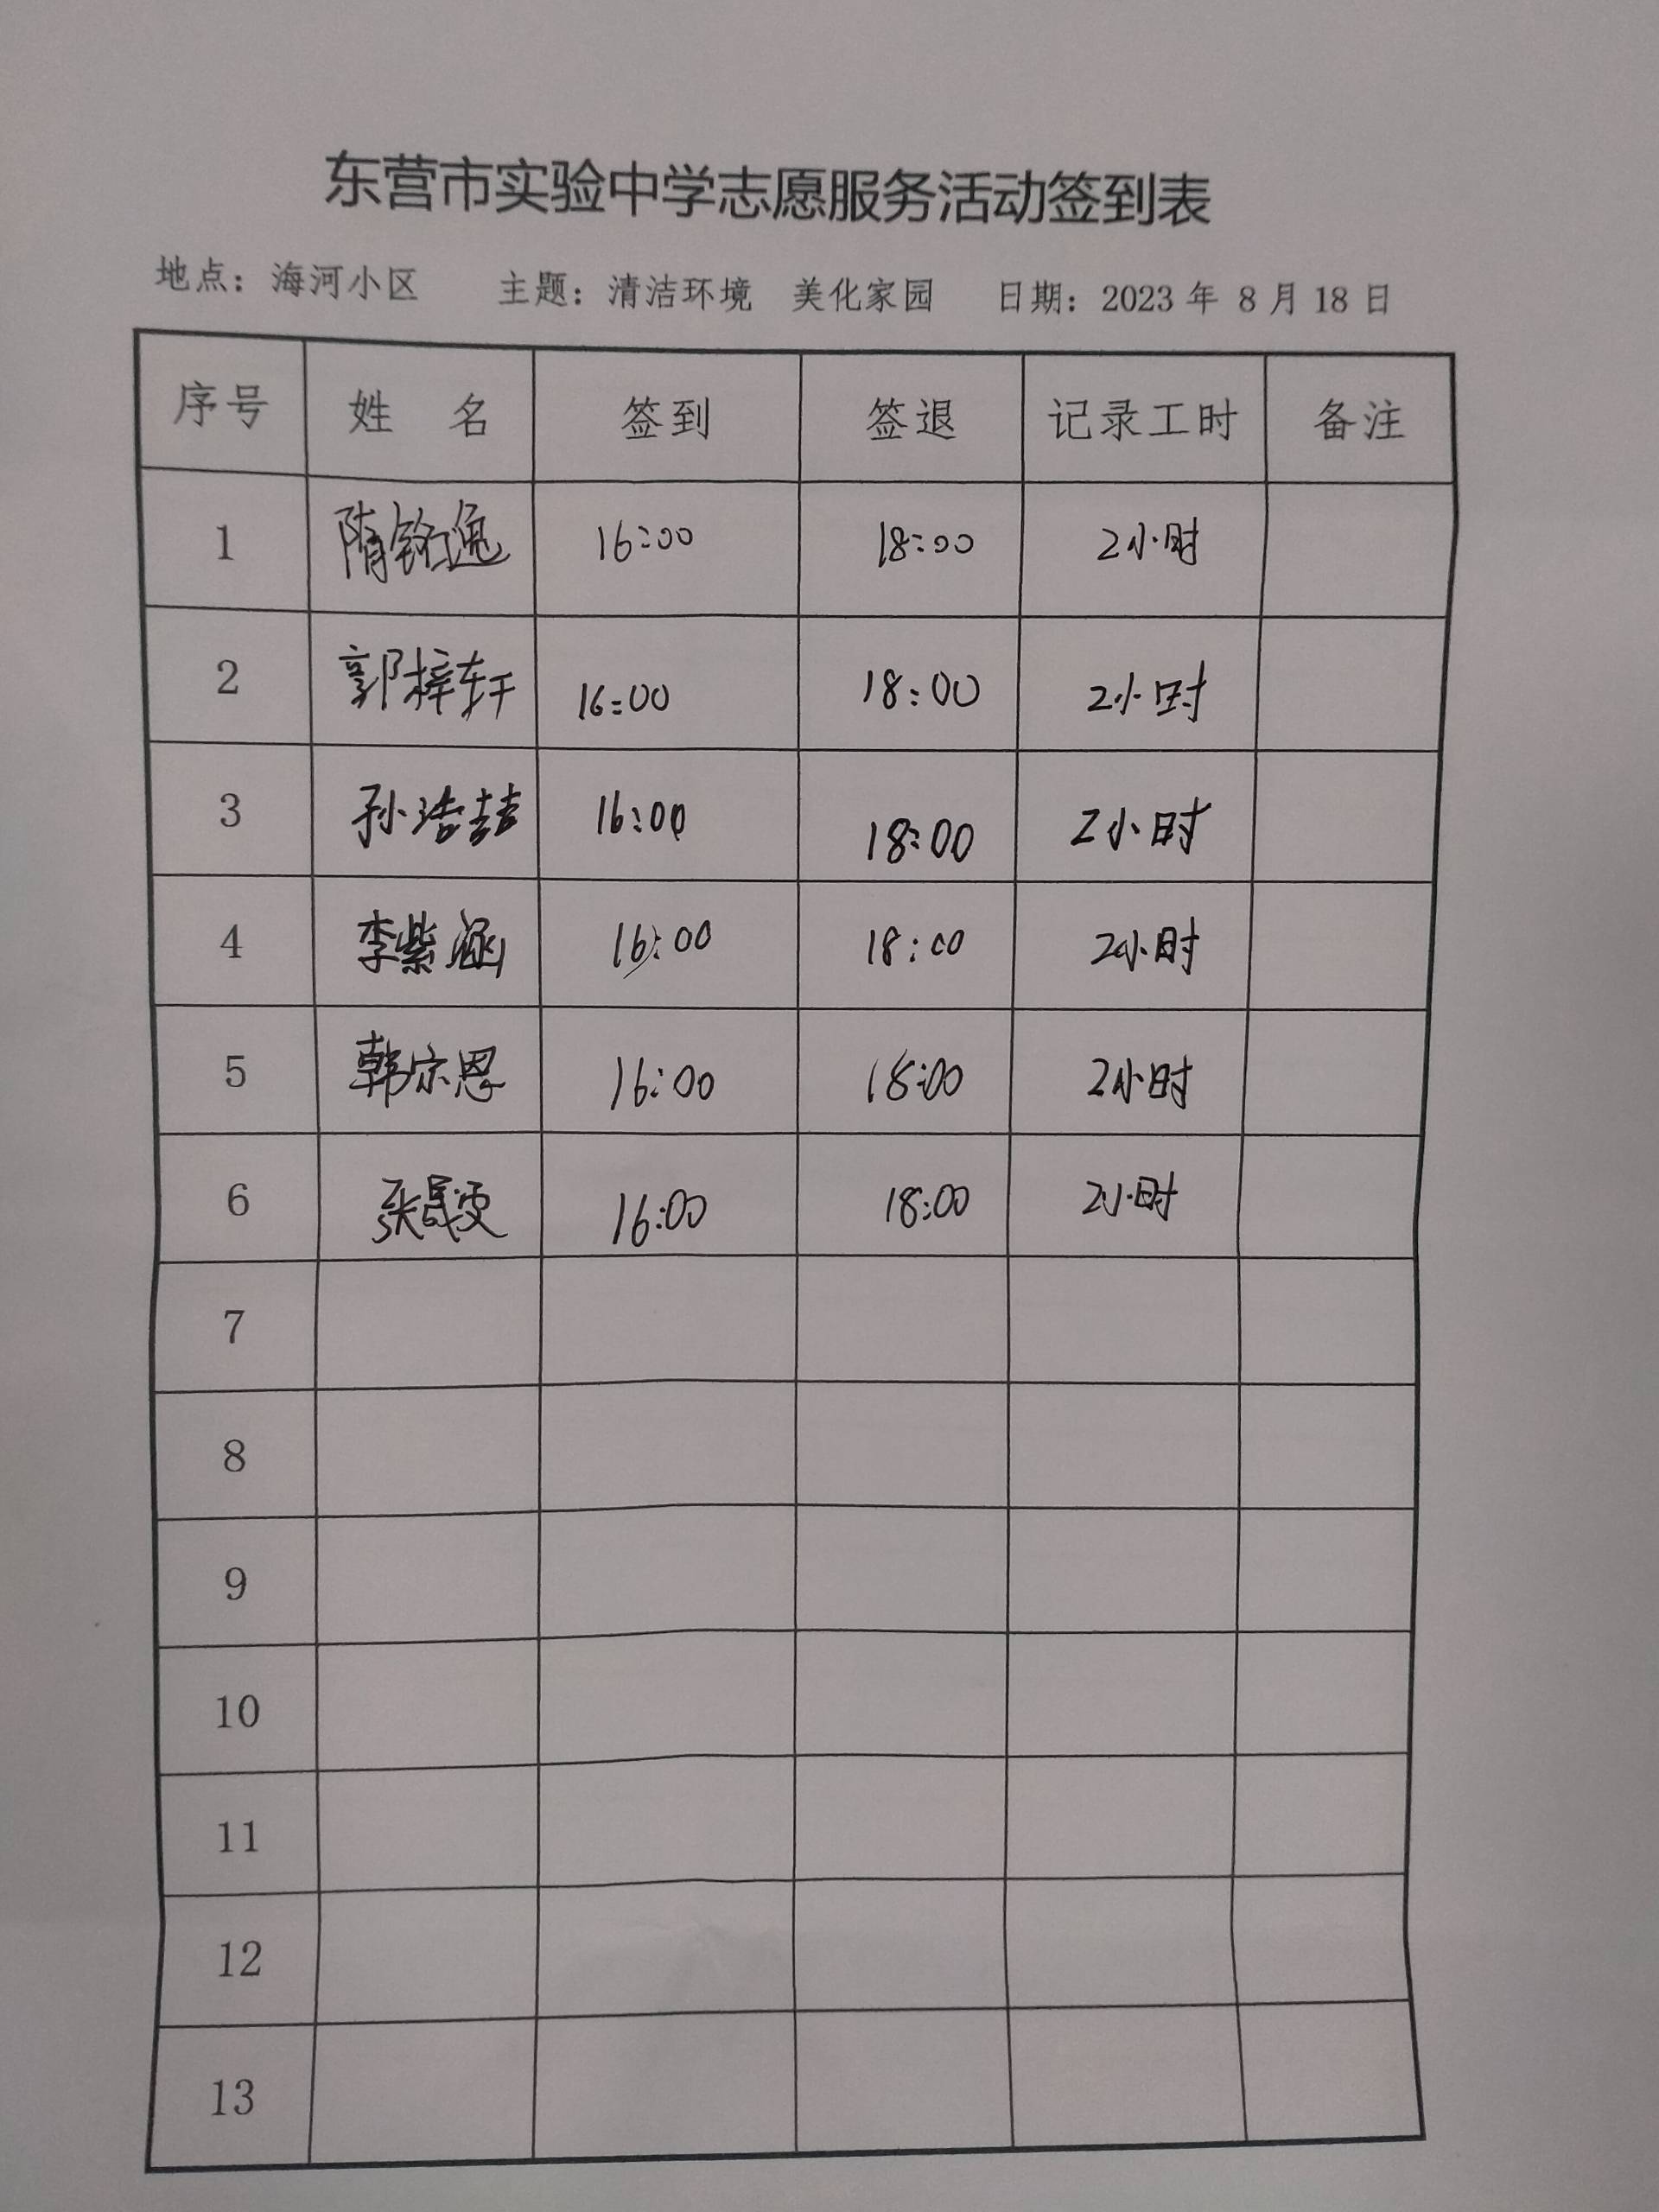 东营市实验中学志愿服务活动签到表
地点：海河小区 主题：清洁环境 美化家园 日期：2023 年 8 月 18 日
序号 姓 名 签到 签退 记录工时 备注
1 隋铭逸 16:00 18:00 2小时
2 郭梓轩 16:00 18:00 2小时
3 孙浩喆 16:00 18:00 2小时
4 李紫涵 16:00 18:00 2小时
5 韩宗恩 16:00 18:00 2小时
6 张晟雯 16:00 18:00 2小时
7
8
9
10
11
12
13